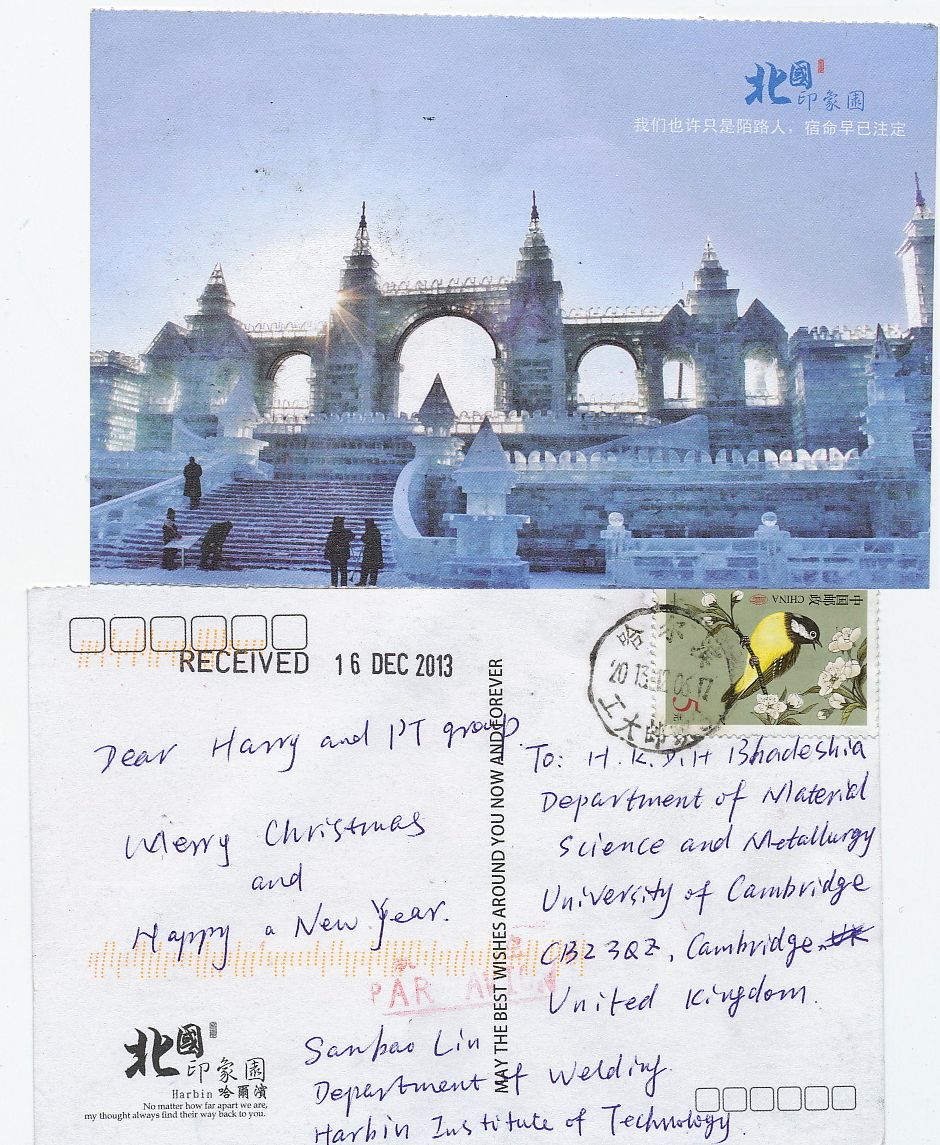 北國
印象園
我们也许只是陌路人，宿命早已注定
中国邮政 CHINA
5元
哈尔滨
2013.12.06.17
工大邮
RECEIVED 16 DEC 2013
Dear Harry and PT group.
Merry Christmas
and
Happy a New Year.
PAR AVION
MAY THE BEST WISHES AROUND YOU NOW AND FOREVER
To: H.K.D.H Bhadeshia
Department of Material
Science and Metallurgy
University of Cambridge
CB2 3QZ, Cambridge, UK
United Kingdom.
Sanbao Lin
Department of Welding.
Harbin Institute of Technology.
北國
印象園
Harbin 哈爾濱
No matter how far apart we are,
my thought always find their way back to you.